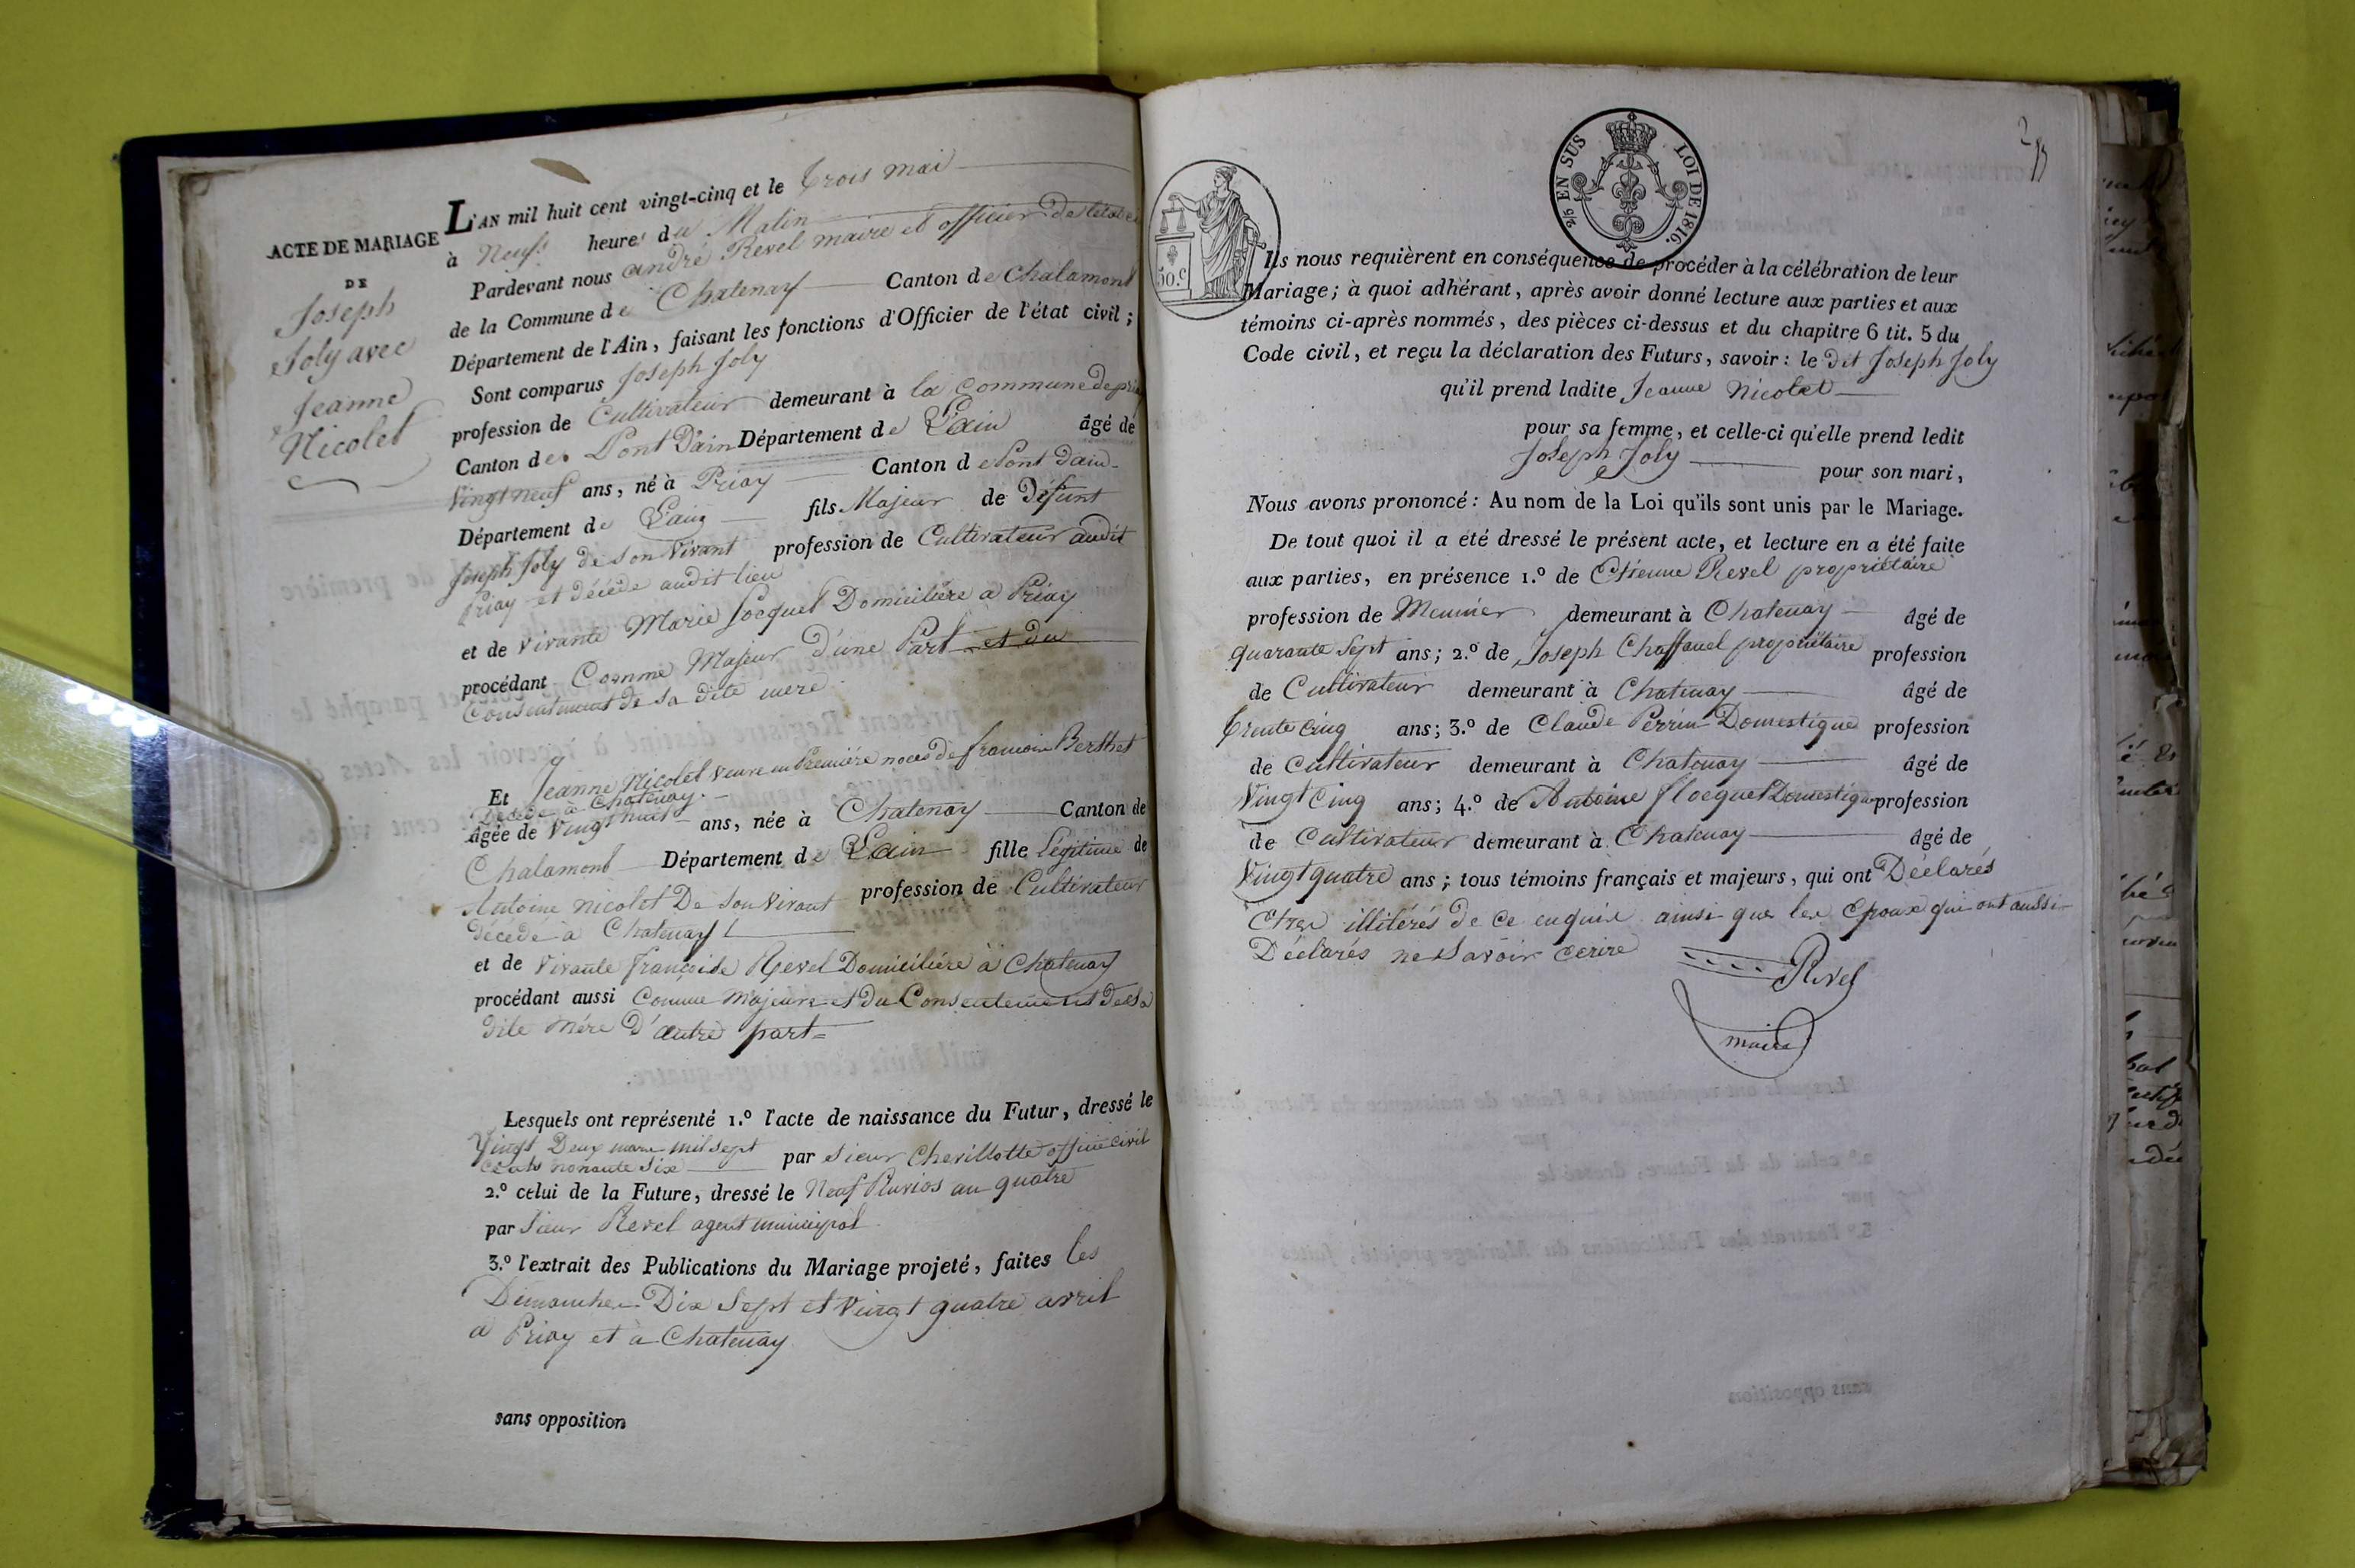 ACTE DE MARIAGE
DE
Joseph
Joly avec
Jeanne
Nicolet
L'AN mil huit cent vingt-cinq et le trois mai
à Neuf heures du Matin
Pardevant nous andré Revel maire et officier de
de la Commune de Chatenay Canton de Chalamont
Département de l'Ain, faisant les fonctions d'Officier de l'état civil ;
Sont comparus Joseph Joly
profession de Cultivateur demeurant à la commune de
Canton de Pont Dain Département de L'ain âgé de
Vingt neuf ans, né à Priay Canton de Pont dain
Département de L'ain fils Majeur de Défunt
Joseph Joly de son vivant profession de Cultivateur audit
Priay et décédé audit lieu
et de vivante Marie Locquet Domiciliére a Priay
procédant Comme Majeur d'une Part et du
Consentement de sa dite mere
Et Jeanne Nicolet veuve en Première noces de francois Berthet
Décédé à Chatenay.
âgée de Vingt huit ans, née à Chatenay Canton de
Chalamont Département de L'ain fille légitime de
Antoine nicolet De son vivant profession de Cultivateur
décédé à Chatenay
et de vivante françoise Revel Domiciliére à Chatenay
procédant aussi Comme majeure et du Consentement de sa
dite mére D'autre part=
Lesquels ont représenté 1.º l'acte de naissance du Futur, dressé le
Vingt Deux mars mil sept
cents nonante six par sieur Chevillotte civil
2.º celui de la Future, dressé le Neuf Pluvios an quatre
par sieur Revel agent municipal
3.º l'extrait des Publications du Mariage projeté, faites les
Dimanches Dix Sept et Vingt quatre avril
a Priay et à Chatenay
sans opposition
2
25 EN SUS LOI DE 1816.
50.c
Ils nous requièrent en conséquence de procéder à la célébration de leur
Mariage ; à quoi adhérant, après avoir donné lecture aux parties et aux
témoins ci-après nommés, des pièces ci-dessus et du chapitre 6 tit. 5 du
Code civil, et reçu la déclaration des Futurs, savoir : le dit Joseph Joly
qu'il prend ladite Jeanne Nicolet
pour sa femme, et celle-ci qu'elle prend ledit
Joseph Joly pour son mari,
Nous avons prononcé : Au nom de la Loi qu'ils sont unis par le Mariage.
De tout quoi il a été dressé le présent acte, et lecture en a été faite
aux parties, en présence 1.º de Etienne Revel propriétaire
profession de Meunier demeurant à Chatenay âgé de
quarante Sept ans ; 2.º de Joseph Chaffanel propriétaire profession
de Cultivateur demeurant à Chatenay âgé de
trente cinq ans ; 3.º de Claude Perrin Domestique profession
de Cultivateur demeurant à Chatenay âgé de
Vingt Cinq ans ; 4.º de Antoine Domestique profession
de Cultivateur demeurant à Chatenay âgé de
Vingt quatre ans ; tous témoins français et majeurs, qui ont Déclarés
Etre illitérés de ce enquis ainsi que les Epoux qui ont aussi
Déclarés ne Savoir ecrire
Revel
maire